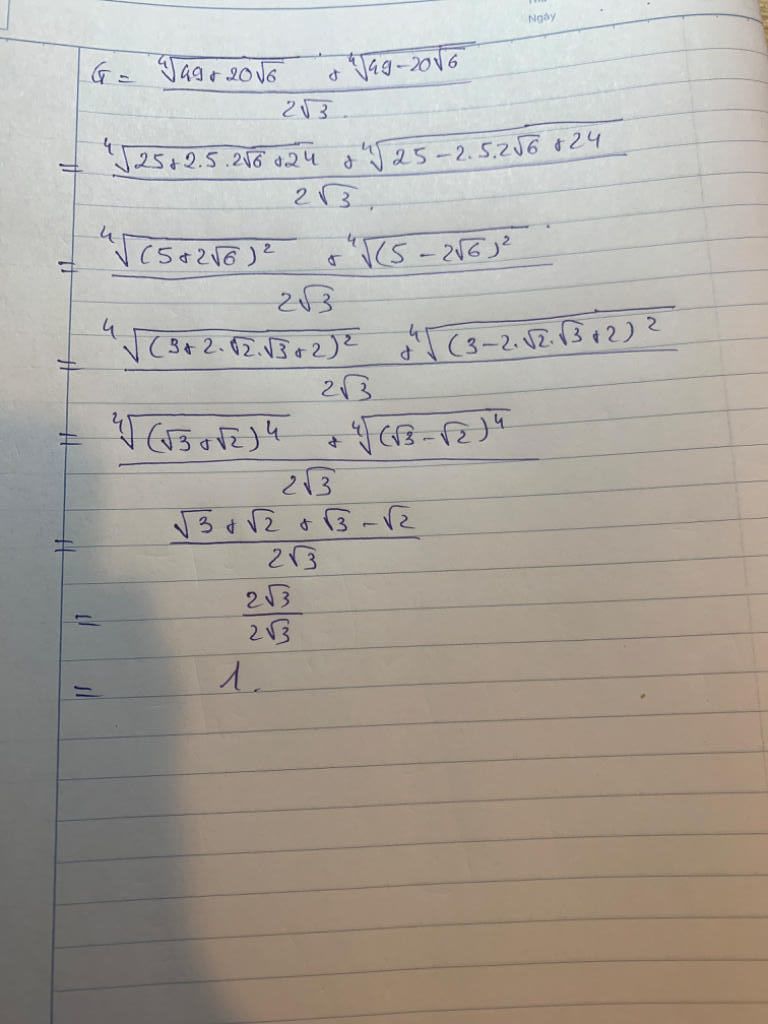 Ngày
G = (⁴√(49+20√6) + ⁴√(49-20√6)) / (2√3)
= (⁴√(25+2.5.2√6+24) + ⁴√(25-2.5.2√6+24)) / (2√3)
= (⁴√((5+2√6)²) + ⁴√((5-2√6)²)) / (2√3)
= (⁴√((3+2.√2.√3+2)²) + ⁴√((3-2.√2.√3+2)²)) / (2√3)
= (⁴√((√3+√2)⁴) + ⁴√((√3-√2)⁴)) / (2√3)
= (√3+√2+√3-√2) / (2√3)
= (2√3) / (2√3)
= 1.